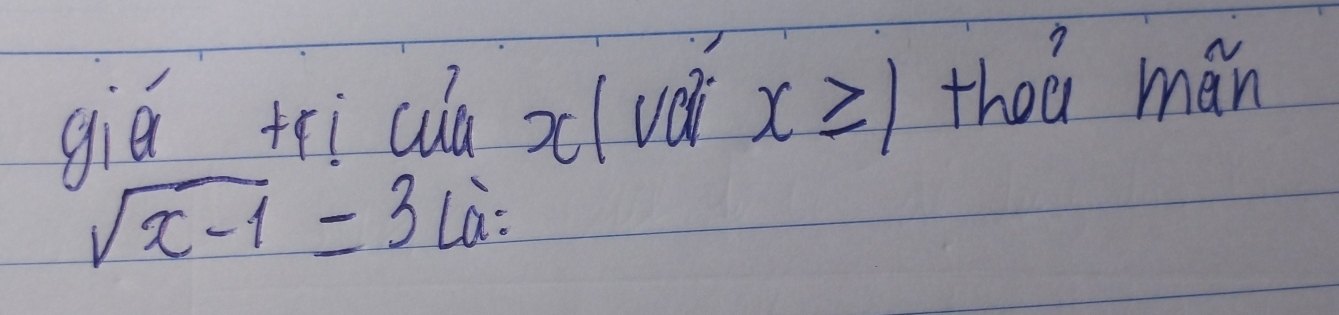 giá trị của x (với x ≥ ) thoả mãn
√x-1 = 3 là: